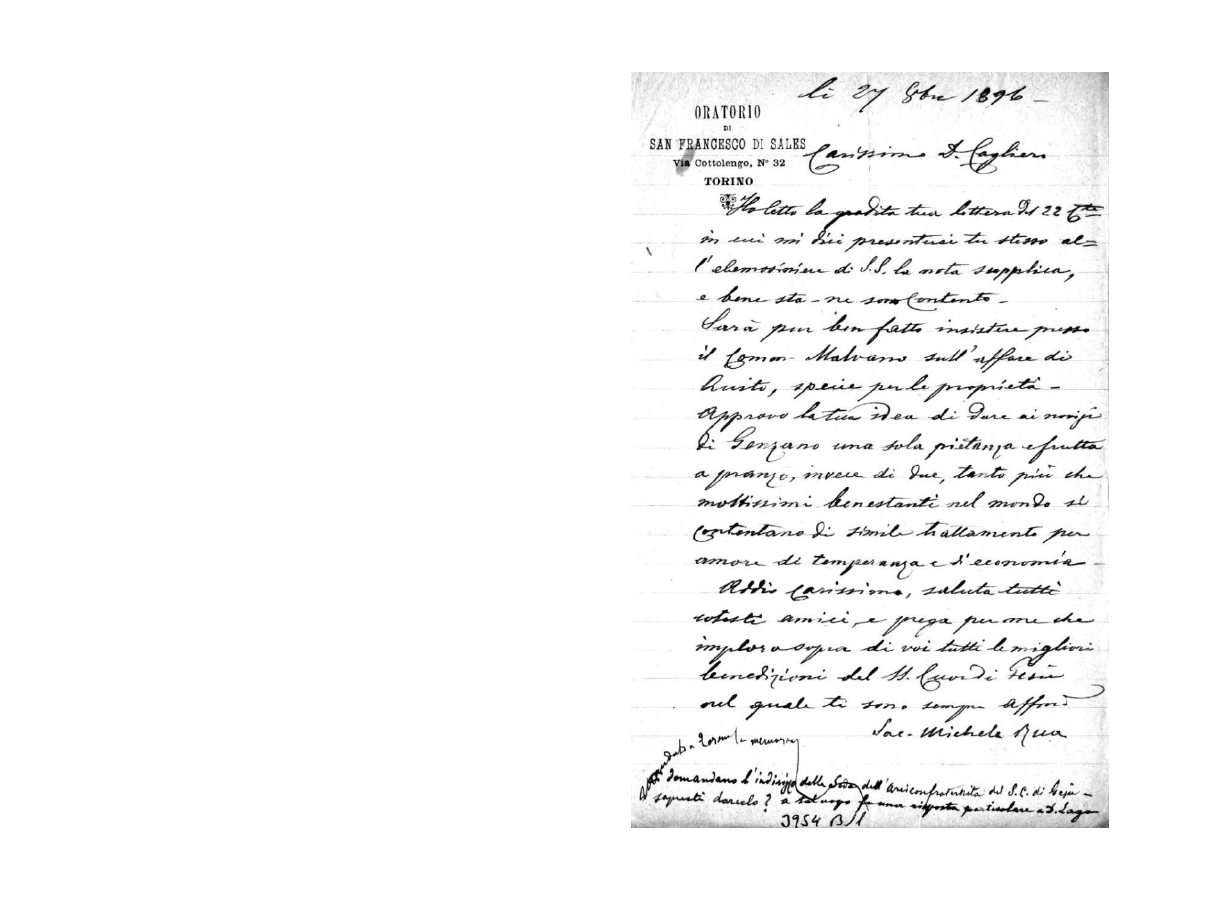 li 27 8bre 1896 -
ORATORIO
DI
SAN FRANCESCO DI SALES
Via Cottolengo, N° 32
TORINO
Carissimo D. Cagliero
Ho letto la gradita tua lettera del 22
in cui mi dici presentarsi tu stesso al=
l'elemosiniere di S.S. la nota supplica,
e bene sta - ne sono contento -
Sarà pur ben fatto insistere presso
il Comm. Malvano sull'affare di
Quito, specie per le proprietà -
Approvo la tua idea di dare ai novizi
di Genzano una sola pietanza e frutta
a pranzo, invece di due, tanto più che
moltissimi benestanti nel mondo si
contentano di simile trattamento per
amore di temperanza e d'economia -
Addio carissimo, saluta tutti
cotesti amici, e prega per me che
imploro sopra di voi tutti le migliori
benedizioni del SS. Cuor di Gesù
nel quale ti sono sempre Aff.mo
Sac. Michele Rua
domandano l'indirizzo della Sede dell'Arciconfraternita del S.C. di Gesù -
sapresti darcelo? a tal uopo fa una risposta particolare a D. Lago
3954 B/1